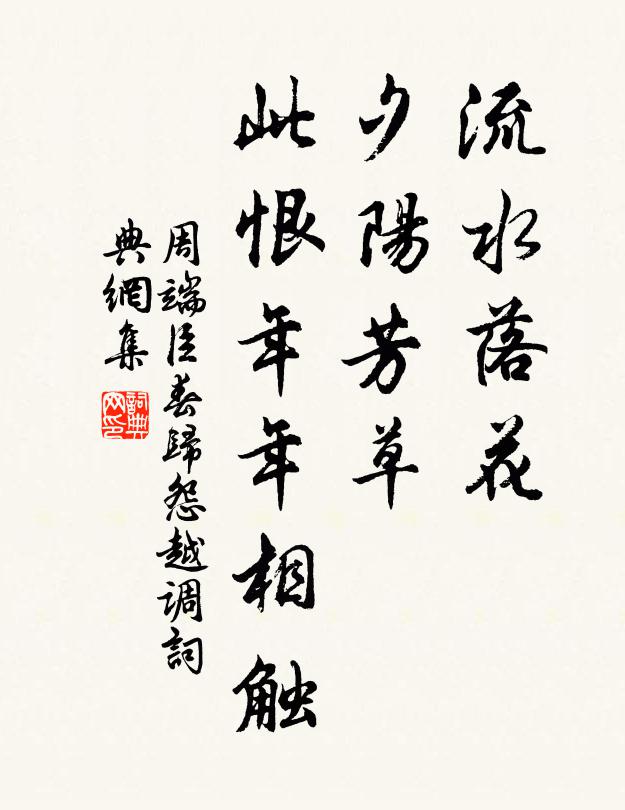 流水落花
夕陽芳草
此恨年年相触
周端臣春歸怨越调詞
典網集
詞典网印